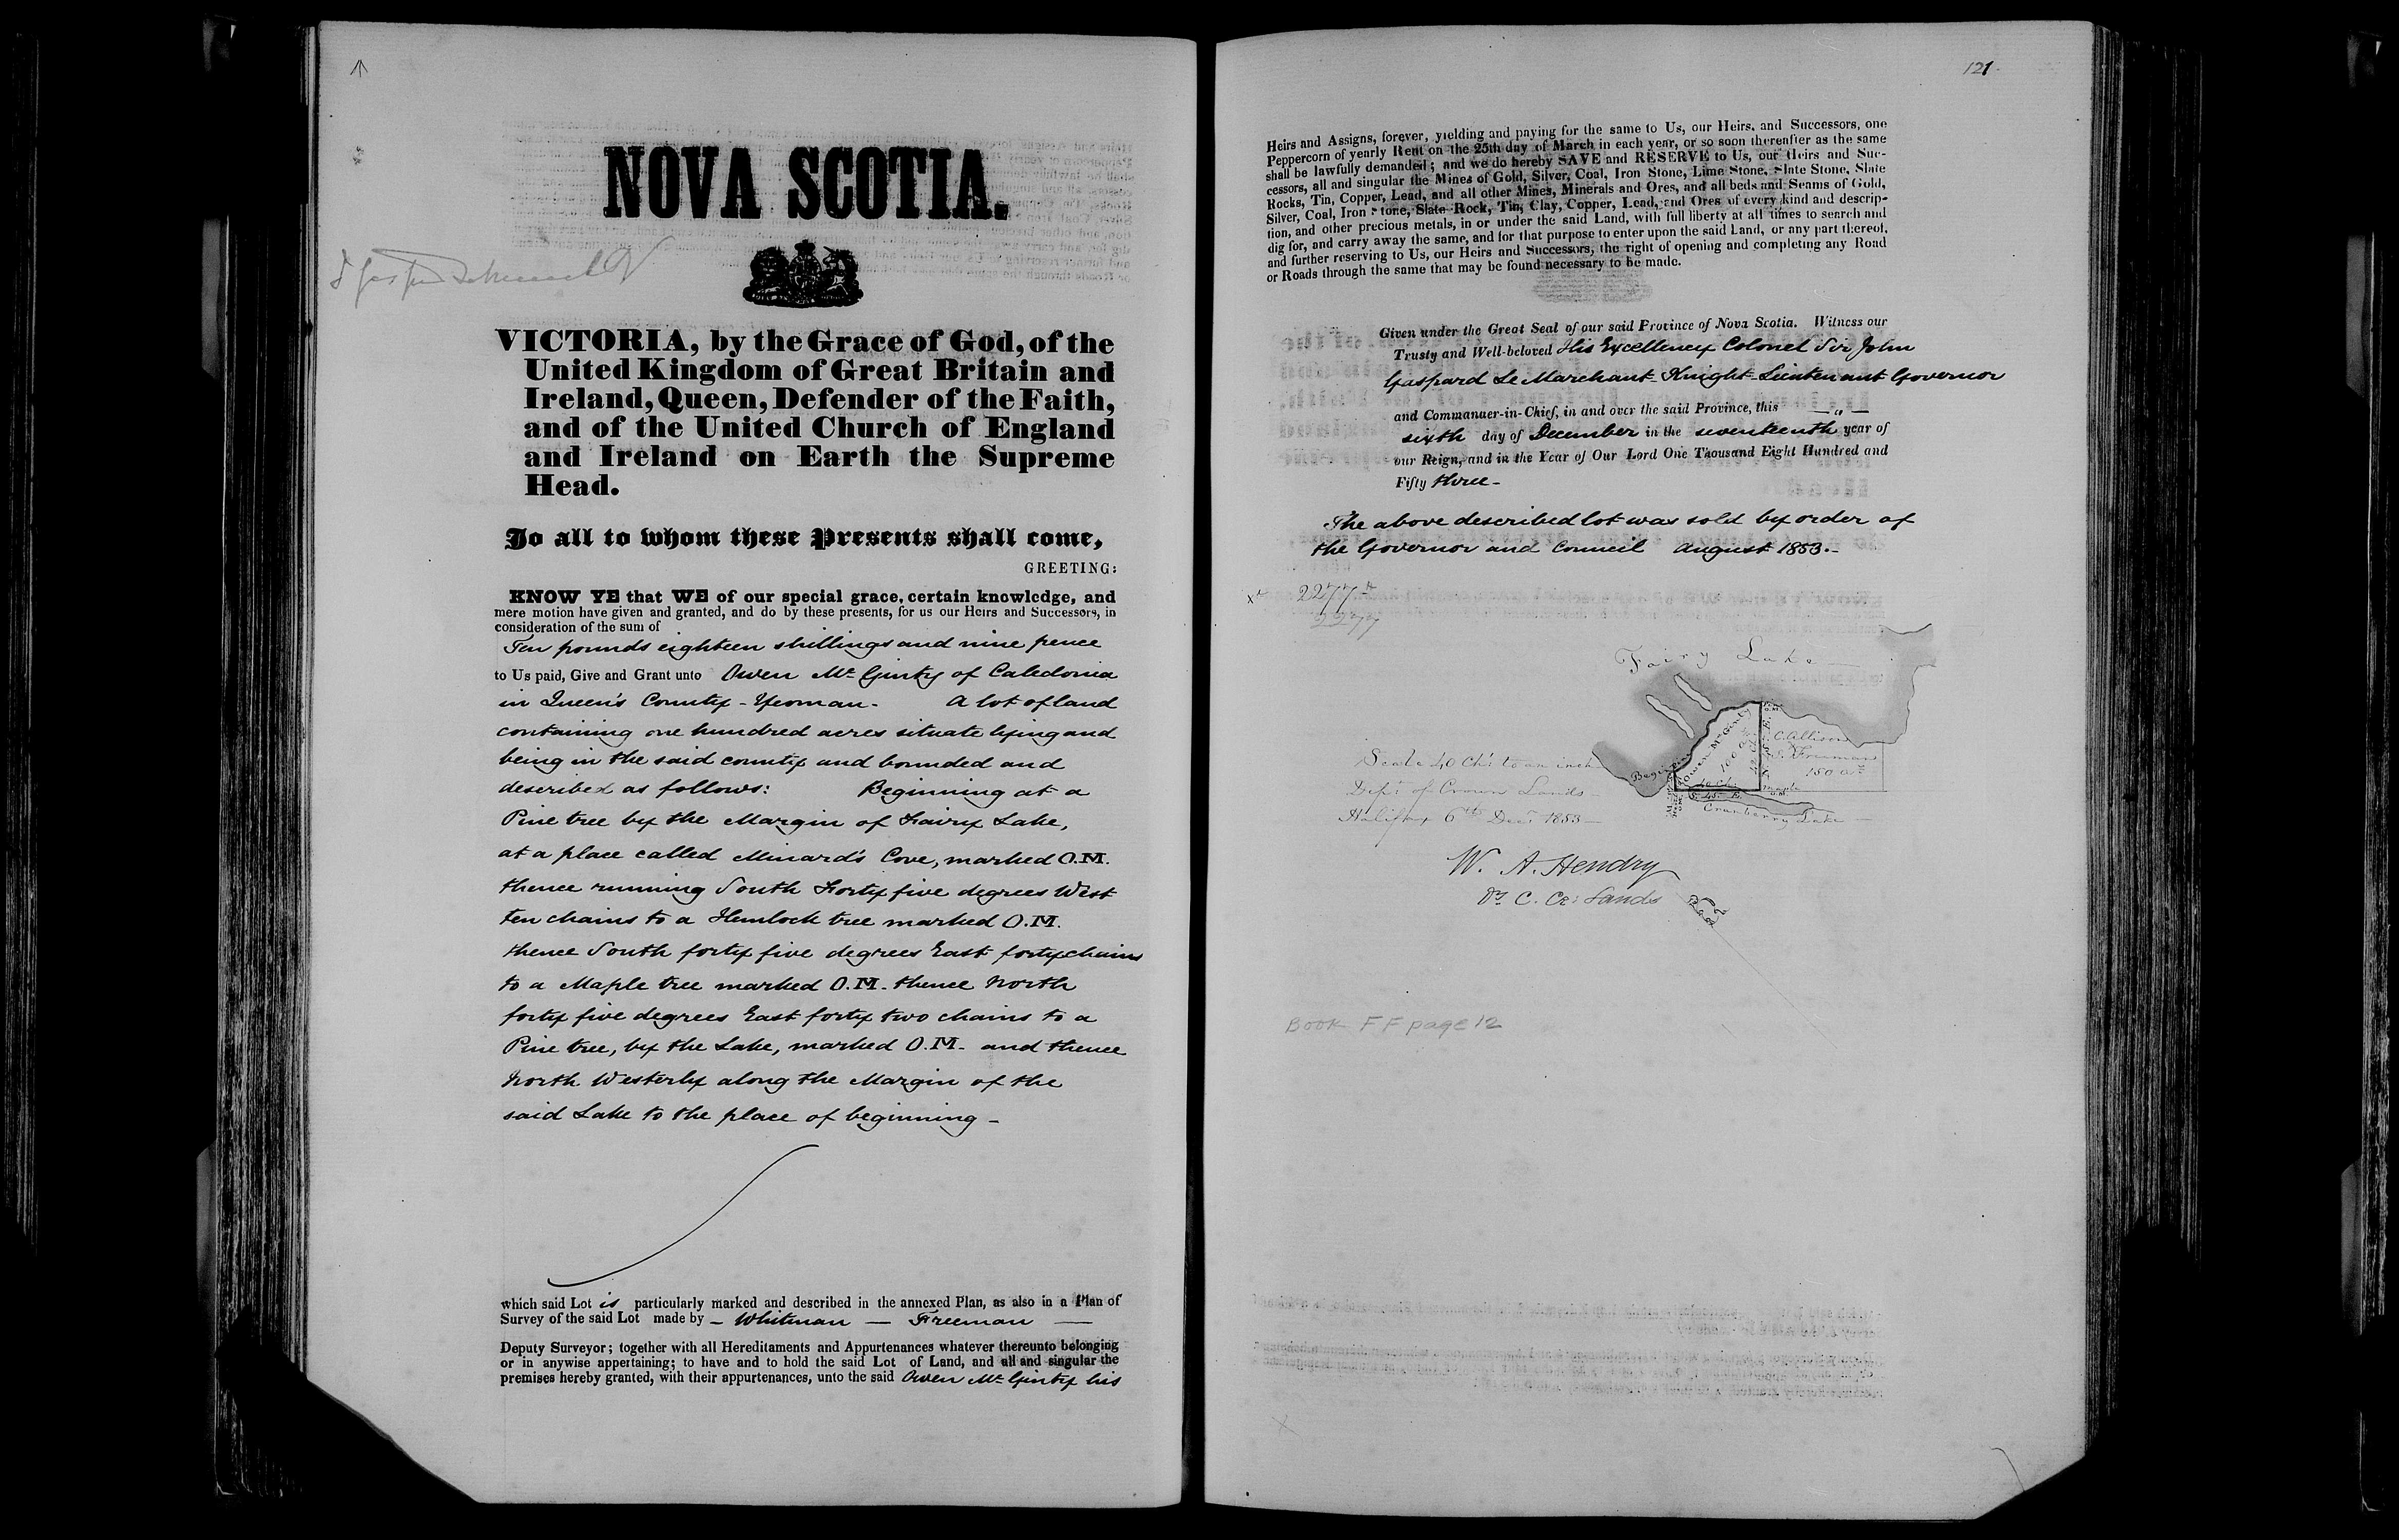 NOVA SCOTIA.
VICTORIA, by the Grace of God, of the
United Kingdom of Great Britain and
Ireland, Queen, Defender of the Faith,
and of the United Church of England
and Ireland on Earth the Supreme
Head.
To all to whom these Presents shall come,
GREETING:
KNOW YE that WE of our special grace, certain knowledge, and
mere motion have given and granted, and do by these presents, for us our Heirs and Successors, in
consideration of the sum of
Ten pounds eighteen shillings and nine pence
to Us paid, Give and Grant unto Owen Mc Ginty of Caledonia
in Queen's County - Yeoman - A lot of land
containing one hundred acres situate lying and
being in the said county and bounded and
described as follows: Beginning at a
Pine tree by the Margin of Fairy Lake,
at a place called Minard's Cove, marked O.M.
thence running South Forty five degrees West
ten chains to a Hemlock tree marked O.M.
thence South forty five degrees East forty chains
to a Maple tree marked O.M. thence North
forty five degrees East forty two chains to a
Pine tree, by the Lake, marked O.M. and thence
North Westerly along the Margin of the
said Lake to the place of beginning -
which said Lot is particularly marked and described in the annexed Plan, as also in a Plan of
Survey of the said Lot made by - Whitman - Freeman -
Deputy Surveyor; together with all Hereditaments and Appurtenances whatever thereunto belonging
or in anywise appertaining; to have and to hold the said Lot of Land, and all and singular the
premises hereby granted, with their appurtenances, unto the said Owen Mc Ginty his
121
Heirs and Assigns, forever, yielding and paying for the same to Us, our Heirs, and Successors, one
Peppercorn of yearly Rent on the 25th day of March in each year, or so soon thereafter as the same
shall be lawfully demanded; and we do hereby SAVE and RESERVE to Us, our Heirs and Suc-
cessors, all and singular the Mines of Gold, Silver, Coal, Iron Stone, Lime Stone, Slate Stone, Slate
Rocks, Tin, Copper, Lead, and all other Mines, Minerals and Ores, and all beds and Seams of Gold,
Silver, Coal, Iron Stone, Slate Rock, Tin, Clay, Copper, Lead, and Ores of every kind and descrip-
tion, and other precious metals, in or under the said Land, with full liberty at all times to search and
dig for, and carry away the same, and for that purpose to enter upon the said Land, or any part thereof,
and further reserving to Us, our Heirs and Successors, the right of opening and completing any Road
or Roads through the same that may be found necessary to be made.
Given under the Great Seal of our said Province of Nova Scotia. Witness our
Trusty and Well-beloved His Excellency Colonel Sir John
Gaspard Le Marchant Knight Lieutenant Governor
and Commander-in-Chief, in and over the said Province, this
sixth day of December in the seventeenth year of
our Reign, and in the Year of Our Lord One Thousand Eight Hundred and
Fifty three -
The above described lot was sold by order of
the Governor and Council August 1853. -
2277
2277
Fairy Lake
Owen McGinty
100 a
C. Allison
S. Freeman
150 acs
Beginning
40 Chs
S. 45 E.
Maple
O.M.
Cranberry Lake
Scale 40 Chs to an inch
Dept of Crown Lands -
Halifax 6th Decr 1853 -
W. A. Hendry
Dy C. Cr: Lands
Book FF page 12